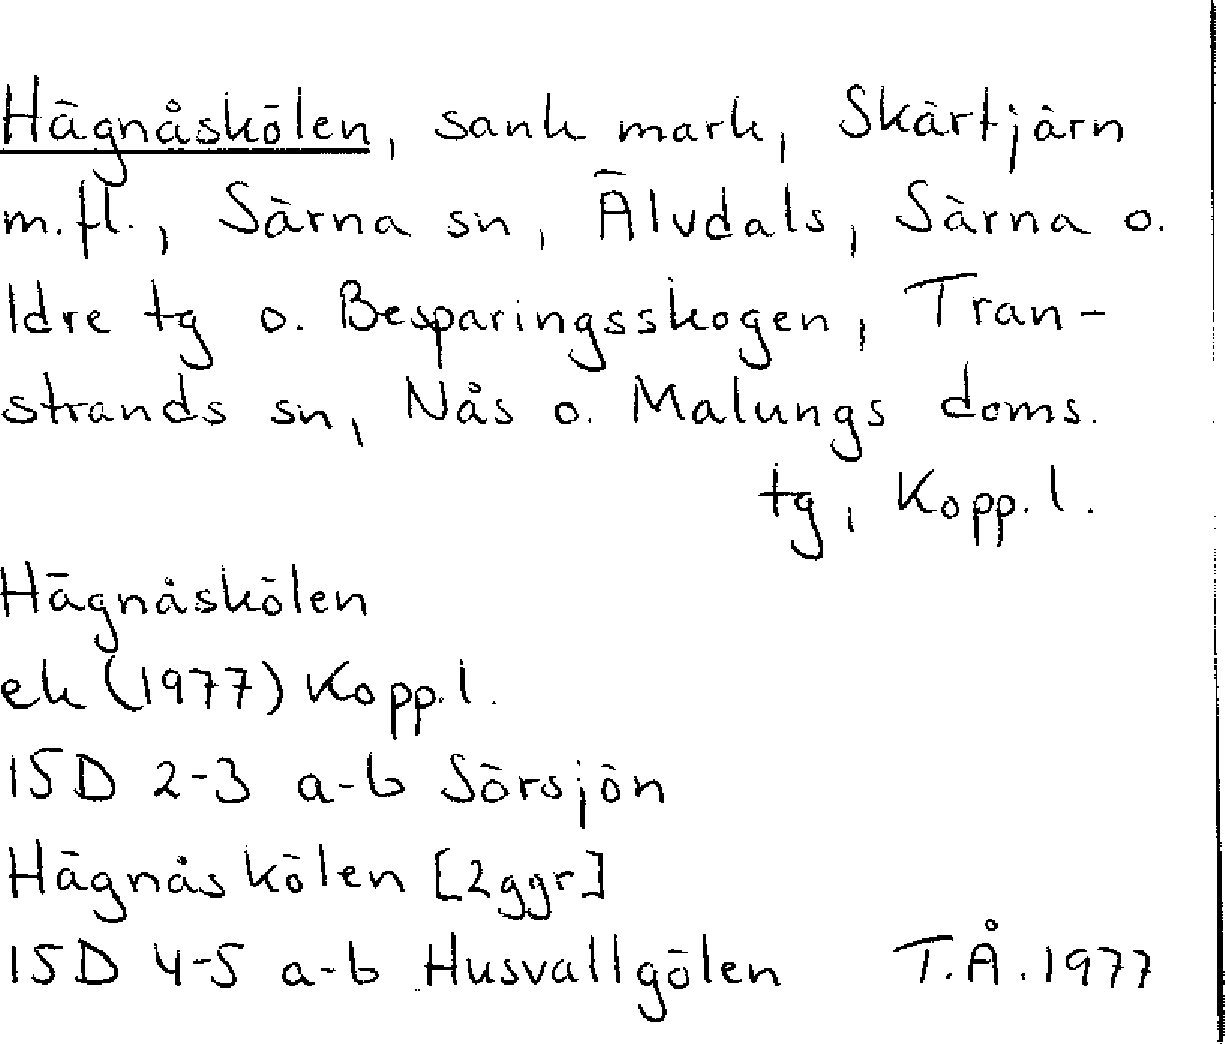 Hägnåskölen, sank mark, Skärtjärn
m.fl., Särna sn, Älvdals, Särna o.
Idre tg o. Besparingsskogen, Tran-
strands sn, Nås o. Malungs doms.
tg, Kopp. l.
Hägnåskölen
ek (1977) Kopp. l.
15D 2-3 a-b Sörsjön
Hägnåskölen [2ggr]
15D 4-5 a-b Husvallgölen T.Å. 1977